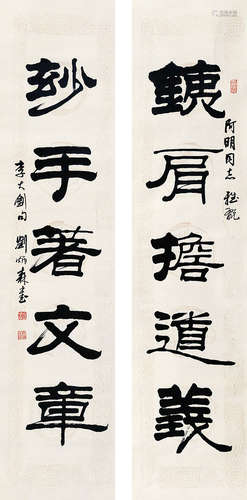 銕肩擔道義
阿明同志雅
玅手著文章
李大釗句 劉炳森書